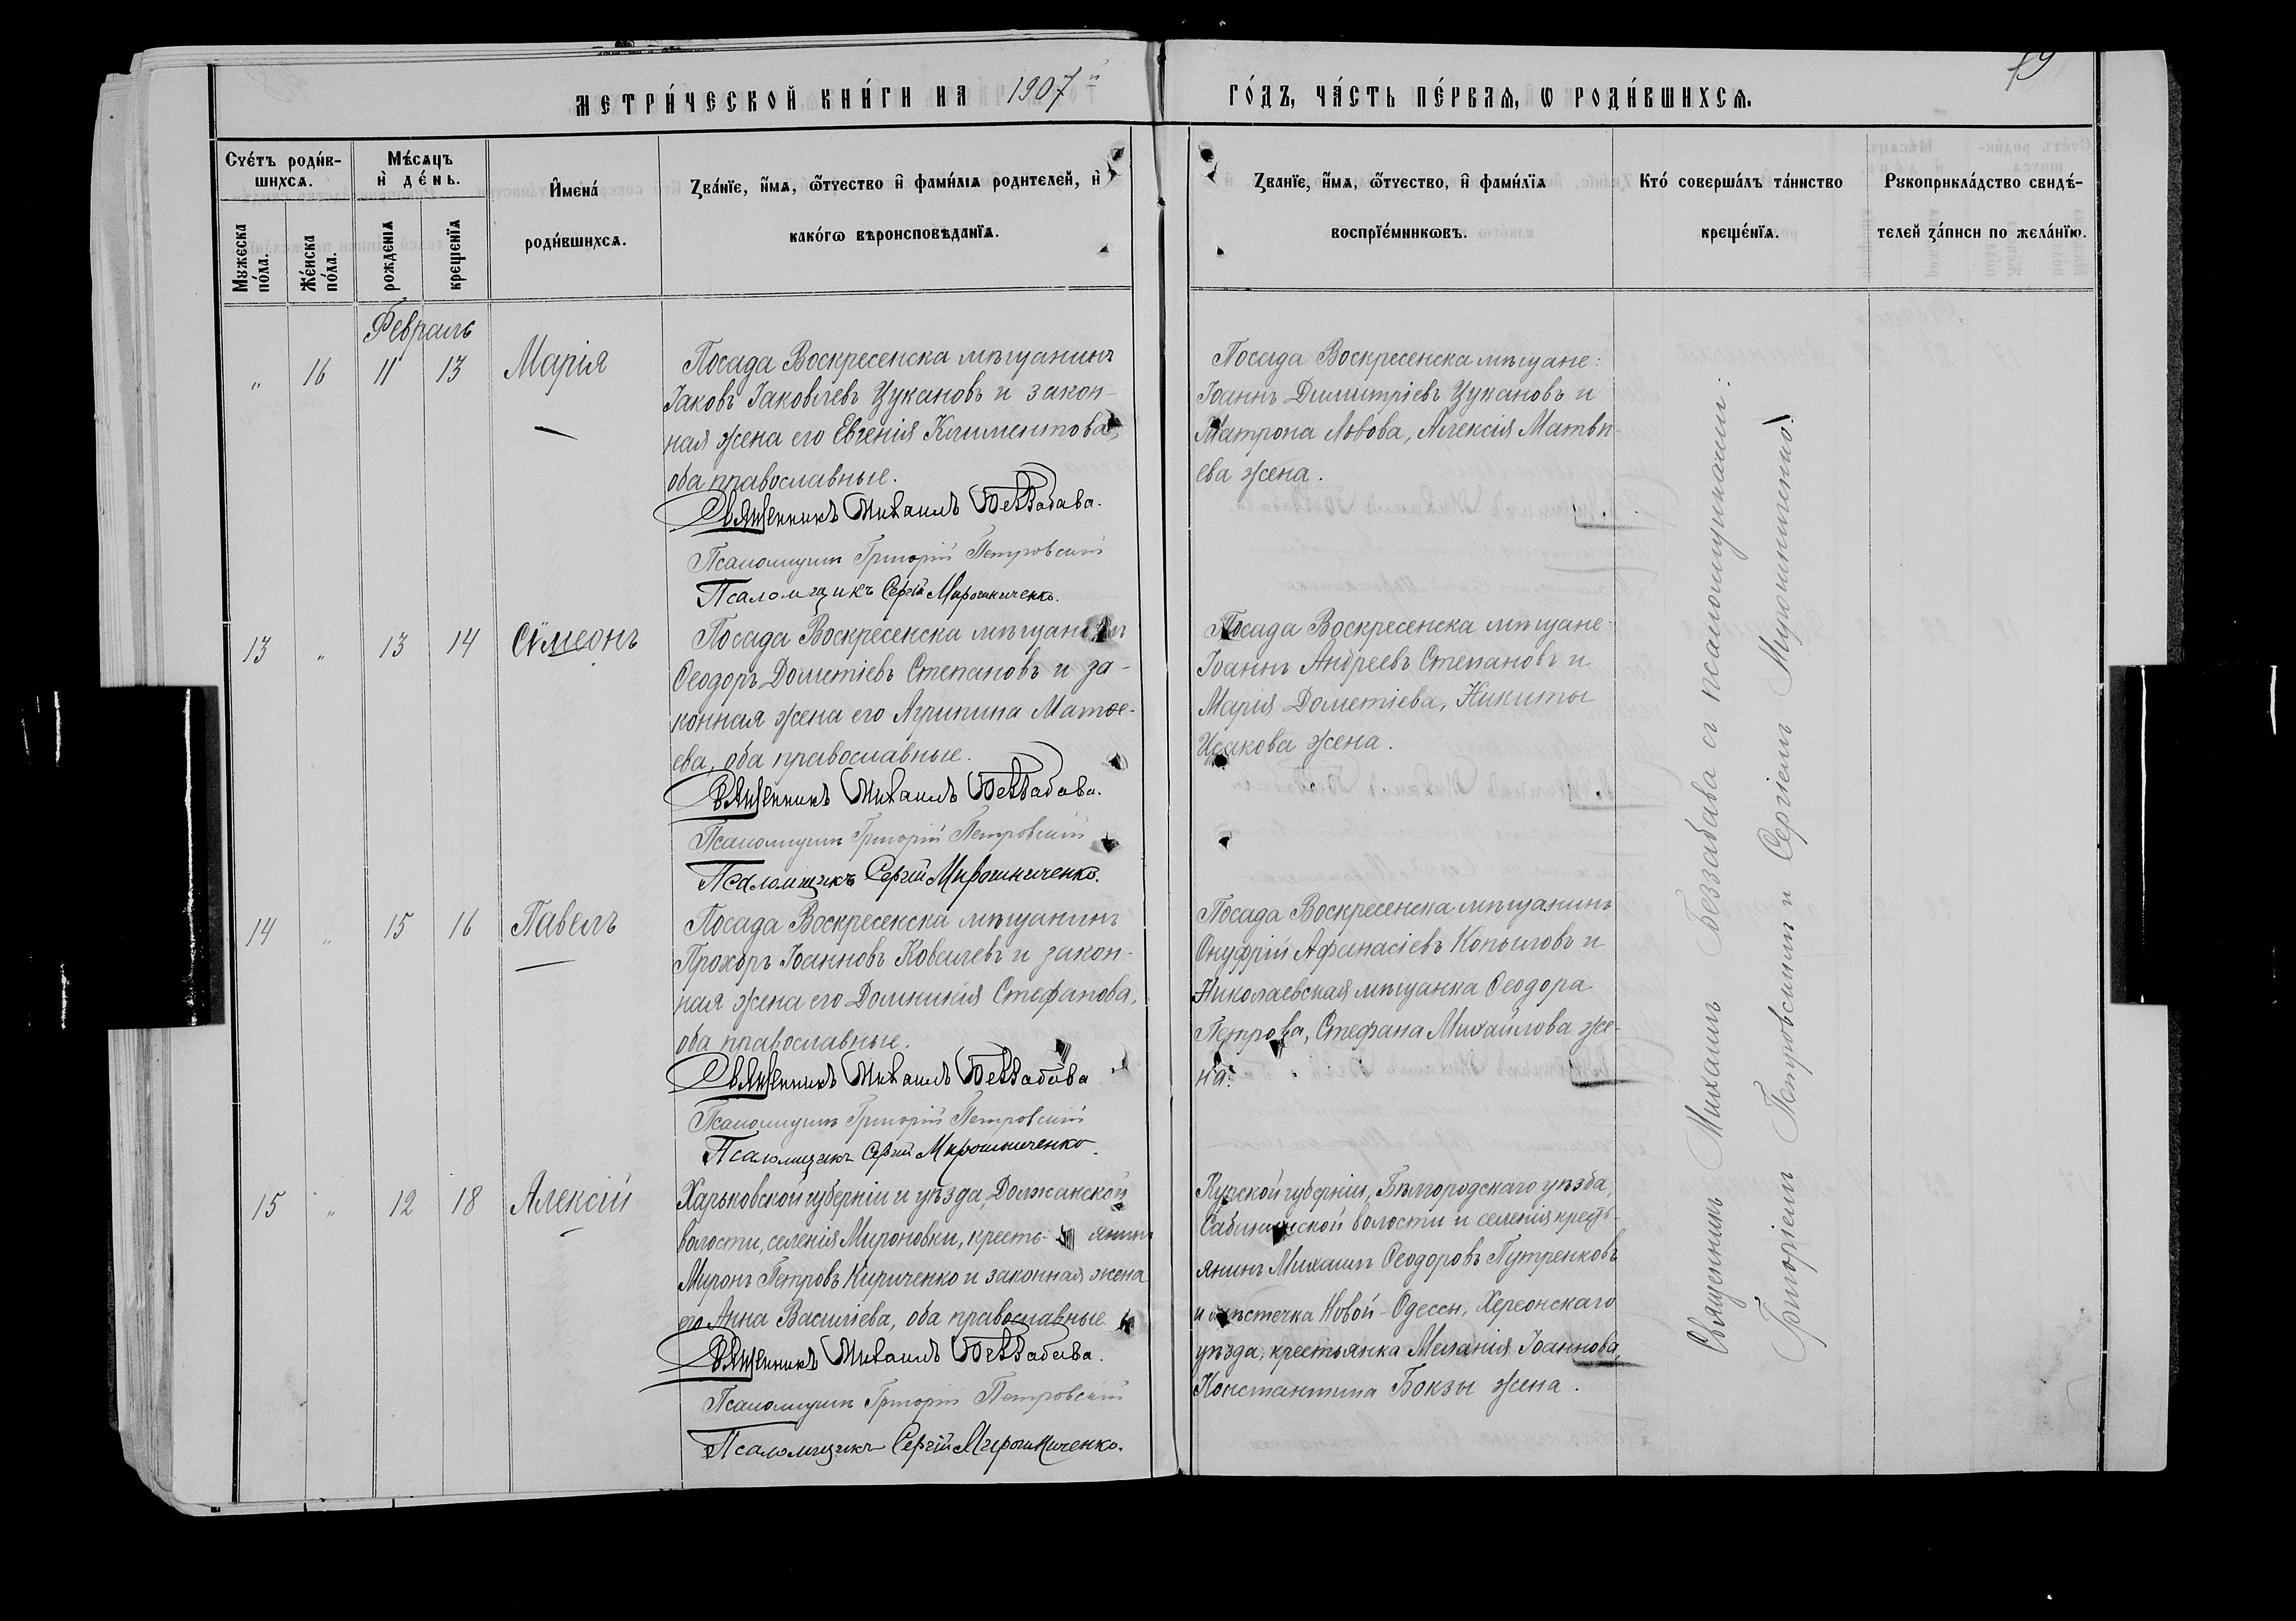 МЕТРИ́ЧЕСКОЙ КНИ́ГИ НА 1907й ГО́ДЪ, ЧА́СТЬ ПЕ́РВАѦ, Ѡ РОДИ́ВШИХСѦ.
Сче́тъ роди́в-
шихсѧ.
Мꙋжеска по́ла.
Же́нска по́ла.
Мѣ́сѧцъ
и҆ де́нь.
рожденїѧ
крещенїѧ
И҆мена́
роди́вшихсѧ.
Зва́нїе, и҆́мѧ, ѻ҆́тчество и҆ фамилїѧ родителей, и҆
како́гѡ вѣроисповѣданїѧ.
Званїе, и҆́мѧ, ѻ҆́тчество, и҆ фами́лїѧ
воспрїе́мникѡвъ.
Кто́ соверша́лъ та́инство
креще́нїѧ.
Рꙋкоприкла́дство свидѣ́-
телей за́писи по жела́нїю.
Февраль
" 16 11 13 Марія
Посада Воскресенска мѣщанинъ
Іаковъ Іаковлевъ Цукановъ и закон-
ная жена его Евгенія Климентова,
оба православные.
Священникъ Михаилъ Беззабава.
Псаломщикъ Григорій Петровскій
Псаломщикъ Сергій Мирошниченко.
Посада Воскресенска мѣщане:
Іоаннъ Димитріевъ Цукановъ и
Матрона Львова, Алексія Матвѣ-
ева жена.
13 " 13 14 Сѵмеонъ
Посада Воскресенска мѣщанинъ
Ѳеодоръ Дометіевъ Степановъ и за-
конная жена его Агрипина Матѳе-
ева, оба православные.
Священникъ Михаилъ Беззабава.
Псаломщикъ Григорій Петровскій
Псаломщикъ Сергій Мирошниченко.
Посада Воскресенска мѣщане
Іоаннъ Андреевъ Степановъ и
Марія Дометіева, Никиты
Исакова жена.
14 " 15 16 Павелъ
Посада Воскресенска мѣщанинъ
Прохоръ Іоанновъ Ковалевъ и закон-
ная жена его Домникія Стефанова,
оба православные.
Священникъ Михаилъ Беззабава
Псаломщикъ Григорій Петровскій
Псаломщикъ Сергій Мирошниченко.
Посада Воскресенска мѣщанинъ
Онуфрій Афанасіевъ Копыловъ и
Николаевская мѣщанка Ѳеодора
Петрова, Стефана Михайлова же-
на.
15 " 12 18 Алексій
Харьковской губерніи и уѣзда, Должанской
волости, селенія Мироновки, кресть- янинъ
Миронъ Петровъ Кириченко и законная жена
его Анна Василіева, оба православные
Священникъ Михаилъ Беззабава.
Псаломщикъ Григорій Петровскій
Псаломщикъ Сергій Мирошниченко.
Курской губерніи, Бѣлгородскаго уѣзда,
Сабынинской волости и селенія кресть-
янинъ Михаилъ Ѳеодоровъ Путренковъ
и мѣстечка Новой-Одессы, Херсонскаго
уѣзда, крестьянка Меланія Іоаннова,
Константина Бокзы жена.
Священникъ Михаилъ Беззабава съ псаломщиками:
Григоріемъ Петровскимъ и Сергіемъ Мирошниченко.